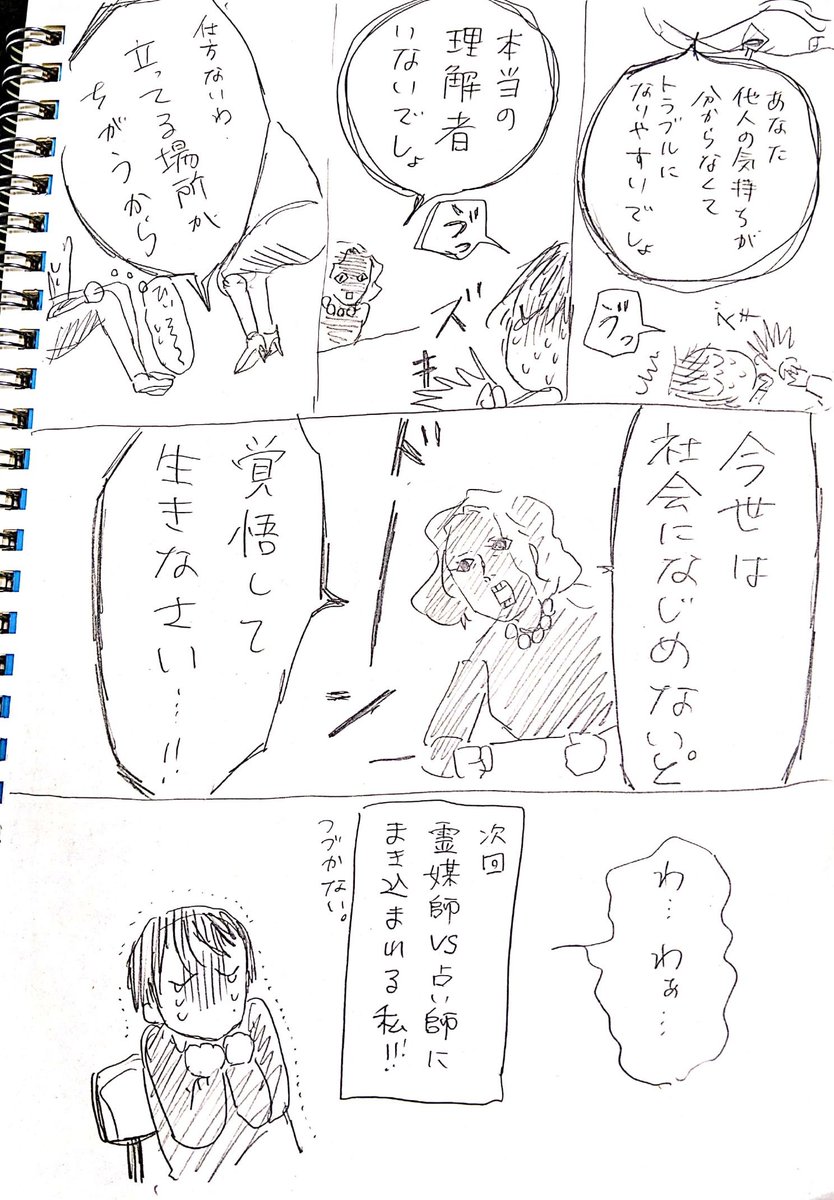 あなた
他人の気持ちが
分からなくて
トラブルに
なりやすいでしょ
ゔっ
本当の
理解者
いないでしょ
ゔっ
ズ
仕方ないわ
立ってる場所が
ちがうから
今世は
社会になじめないと。
ド
覚悟して
生きなさい…!!
わ…わぁ…
次回
霊媒師VS占い師に
まき込まれる私!!!
つづかない。